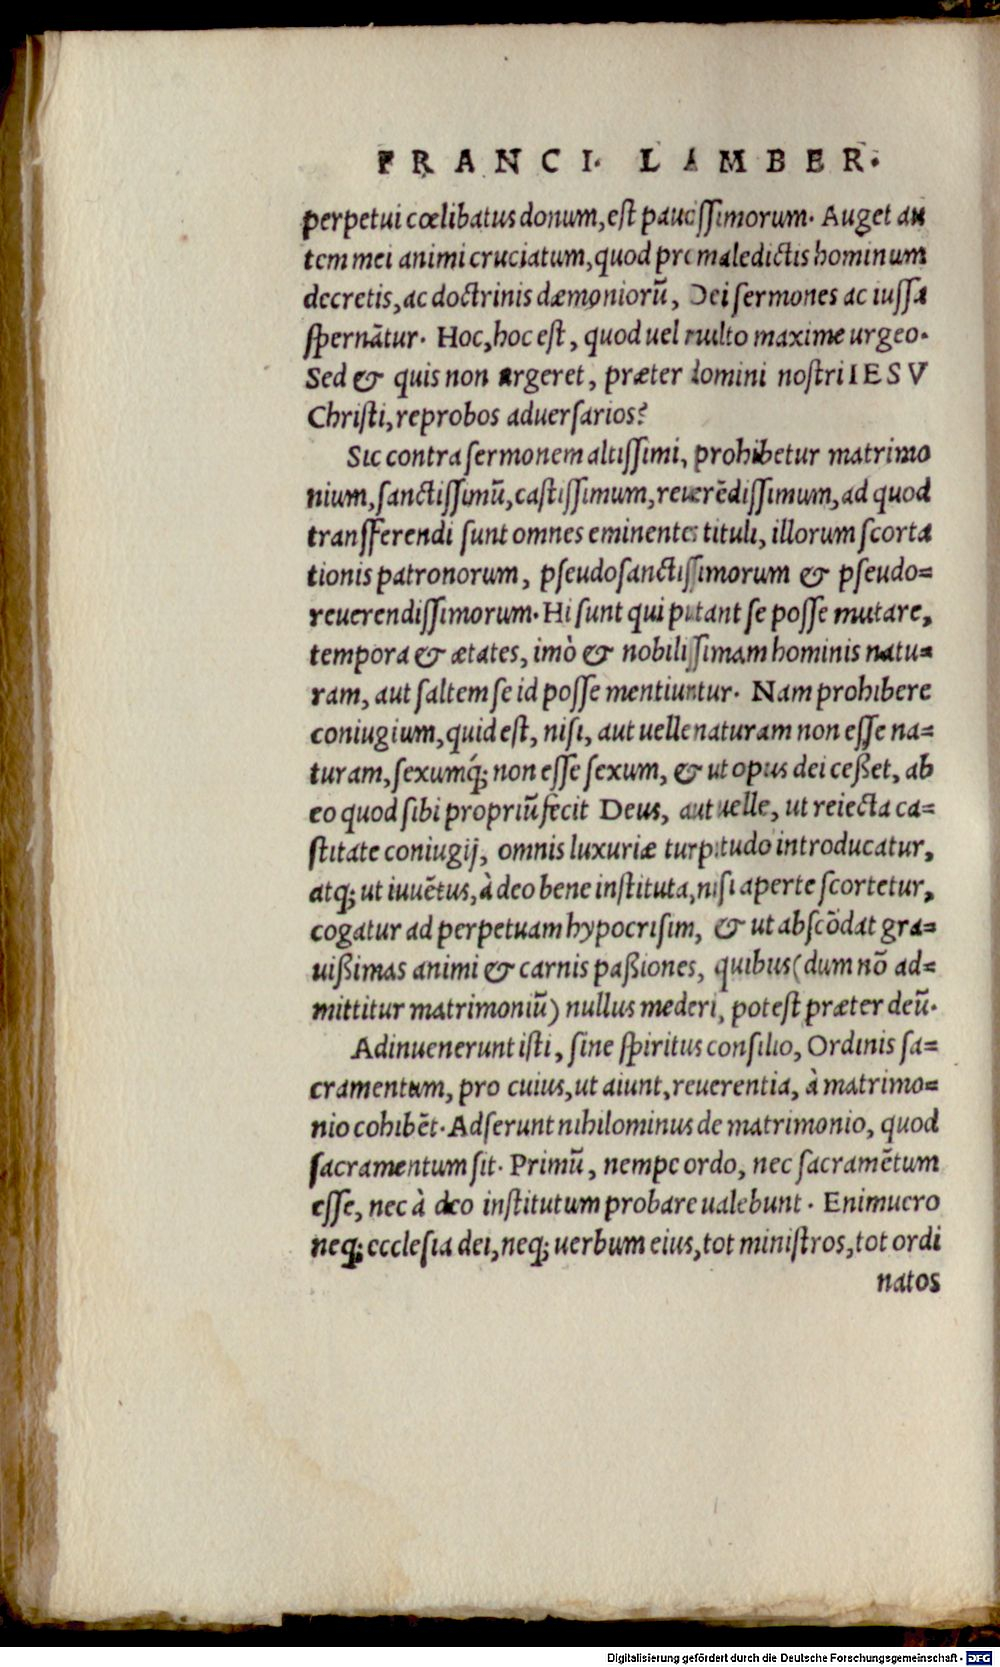 FRANCI. LAMBER.
perpetui cœlibatus donum, est paucissimorum. Auget au
tem mei animi cruciatum, quod pre maledictis hominum
decretis, ac doctrinis dæmoniorū, Dei sermones ac iussa
spernātur. Hoc, hoc est, quod uel multo maxime urgeo.
Sed & quis non urgeret, præter domini nostri IESV
Christi, reprobos aduersarios?
Sic contra sermonem altissimi, prohibetur matrimo
nium, sanctissimū, castissimum, reuerēdissimum, ad quod
transferendi sunt omnes eminentes tituli, illorum scorta
tionis patronorum, pseudosanctissimorum & pseudo=
reuerendissimorum. Hi sunt qui putant se posse mutare,
tempora & ætates, imò & nobilissimam hominis natu=
ram, aut saltem se id posse mentiuntur. Nam prohibere
coniugium, quid est, nisi, aut uelle naturam non esse na=
turam, sexumq́; non esse sexum, & ut opus dei ceßet, ab
eo quod sibi propriū fecit Deus, aut uelle, ut reiecta ca=
stitate coniugij, omnis luxuriæ turpitudo introducatur,
atq; ut iuuētus, à deo bene instituta, nisi aperte scortetur,
cogatur ad perpetuam hypocrisim, & ut abscōdat gra=
uißimas animi & carnis paßiones, quibus (dum nō ad=
mittitur matrimoniū) nullus mederi, potest præter deū.
Adinuenerunt isti, sine spiritus consilio, Ordinis sa=
cramentum, pro cuius, ut aiunt, reuerentia, à matrimo=
nio cohibēt. Adserunt nihilominus de matrimonio, quod
sacramentum sit. Primū, nempe ordo, nec sacramētum
esse, nec à deo institutum probare ualebunt. Enimuero
neq; ecclesia dei, neq; uerbum eius, tot ministros, tot ordi
natos
Digitalisierung gefördert durch die Deutsche Forschungsgemeinschaft - DFG